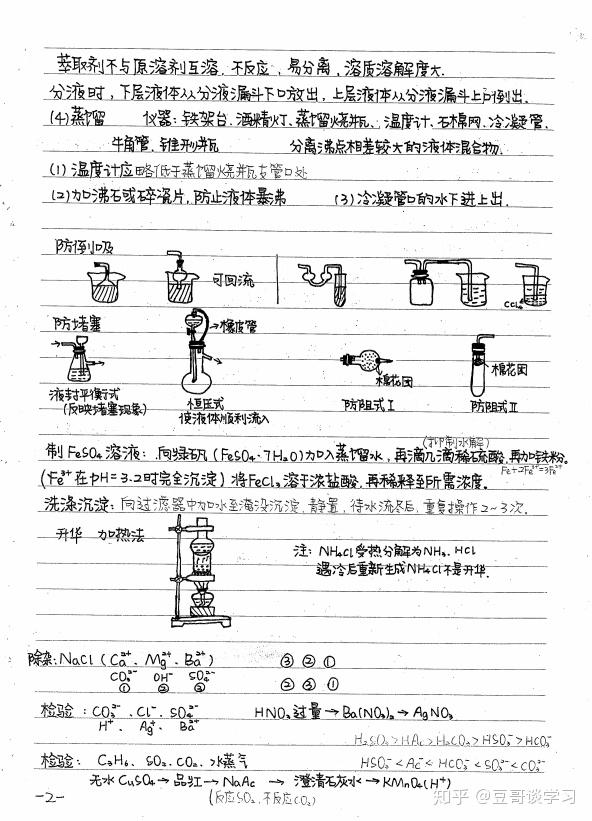 萃取剂不与原溶剂互溶,不反应,易分离,溶质溶解度大.
分液时,下层液体从分液漏斗下口放出,上层液体从分液漏斗上口倒出.
(4)蒸馏 仪器:铁架台.酒精灯、蒸馏烧瓶、温度计、石棉网、冷凝管、
牛角管、锥形瓶 分离沸点相差较大的液体混合物.
(1)温度计应略低于蒸馏烧瓶支管口处
(2)加沸石或碎瓷片,防止液体暴沸 (3)冷凝管口的水下进上出.
防倒吸
可回流
CCl4
防堵塞
橡皮管
棉花团
棉花团
液封平衡式
(反映堵塞现象)
恒压式
使液体顺利流入
防阻式Ⅰ
防阻式Ⅱ
(抑制水解)
制FeSO4溶液:向绿矾(FeSO4·7H2O)加入蒸馏水,再滴几滴稀硫酸,再加铁粉.
Fe+2Fe³⁺=3Fe²⁺
(Fe³⁺在pH=3.2时完全沉淀)将FeCl3溶于浓盐酸,再稀释至所需浓度.
洗涤沉淀:向过滤器中加水至淹没沉淀,静置,待水流尽后,重复操作2~3次.
升华 加热法
注:NH4Cl受热分解为NH3、HCl
遇冷后重新生成NH4Cl不是升华.
除杂:NaCl(Ca²⁺、Mg²⁺、Ba²⁺) ③②①
CO3²⁻ OH⁻ SO4²⁻ ②③①
① ② ③
检验:CO3²⁻.Cl⁻.SO4²⁻ HNO3过量→Ba(NO3)2→AgNO3
H⁺ Ag⁺ Ba²⁺
H2SO3>HAc>H2CO3>HSO3⁻>HCO3⁻
检验:C2H4、SO2、CO2、水蒸气 HSO3⁻<Ac⁻<HCO3⁻<SO3²⁻<CO3²⁻
无水CuSO4→品红→NaAc→澄清石灰水→KMnO4(H⁺)
(反应SO2.不反应CO2)
-2-
知乎 @豆哥谈学习